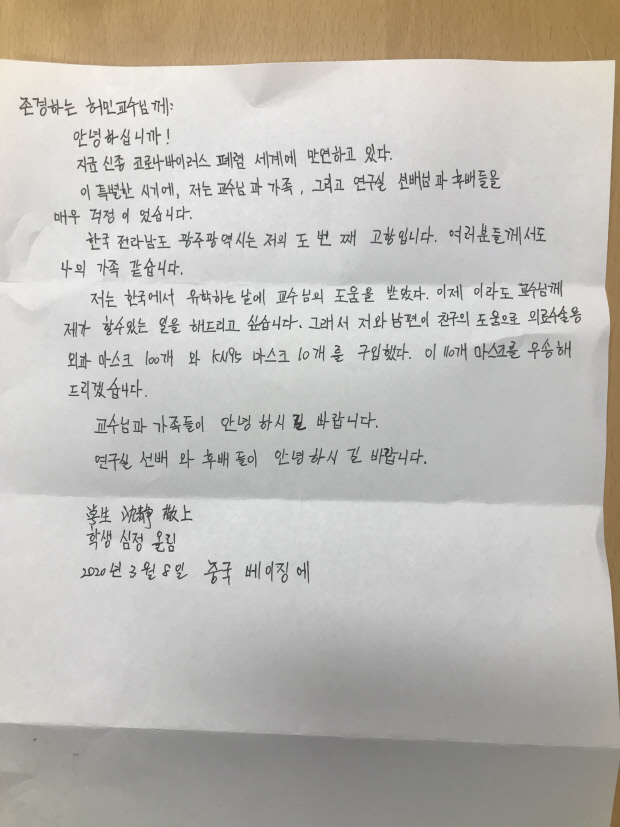 존경하는 허민교수님께:
안녕하십니까!
지금 신종 코로나바이러스 폐렴 세계에 만연하고 있다.
이 특별한 시기에, 저는 교수님과 가족, 그리고 연구실 선배님과 후배들을
매우 걱정이 었습니다.
한국 전라남도 광주광역시는 저의 도 번 째 고향입니다. 여러분들께서도
나의 가족 같습니다.
저는 한국에서 유학하는 날에 교수님의 도움을 받았다. 이제 이라도 교수님께
제가 할수있는 일을 해드리고 싶습니다. 그래서 저와 남편이 친구의 도움으로 의료수술용
외과 마스크 100개 와 KN95 마스크 10개를 구입했다. 이 110개 마스크를 우송해
드리겠습니다.
교수님과 가족들이 안녕 하시 길 바랍니다.
연구실 선배 와 후배 들이 안녕하시 길 바랍니다.
学生 沈静 敬上
학생 심정 올림
2020년 3월 8일 중국 베이징에